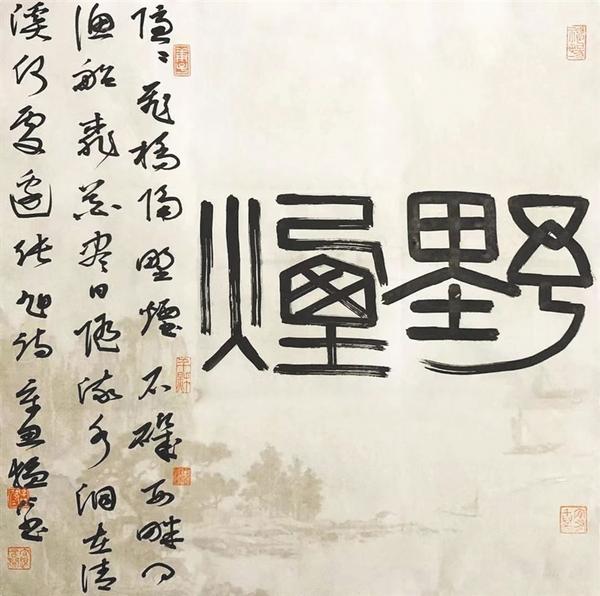 野煙
隱〻飛橋隔野煙石磯西畔問
漁船桃花盡日隨流水洞在清
溪何處邊張旭詩辛丑書